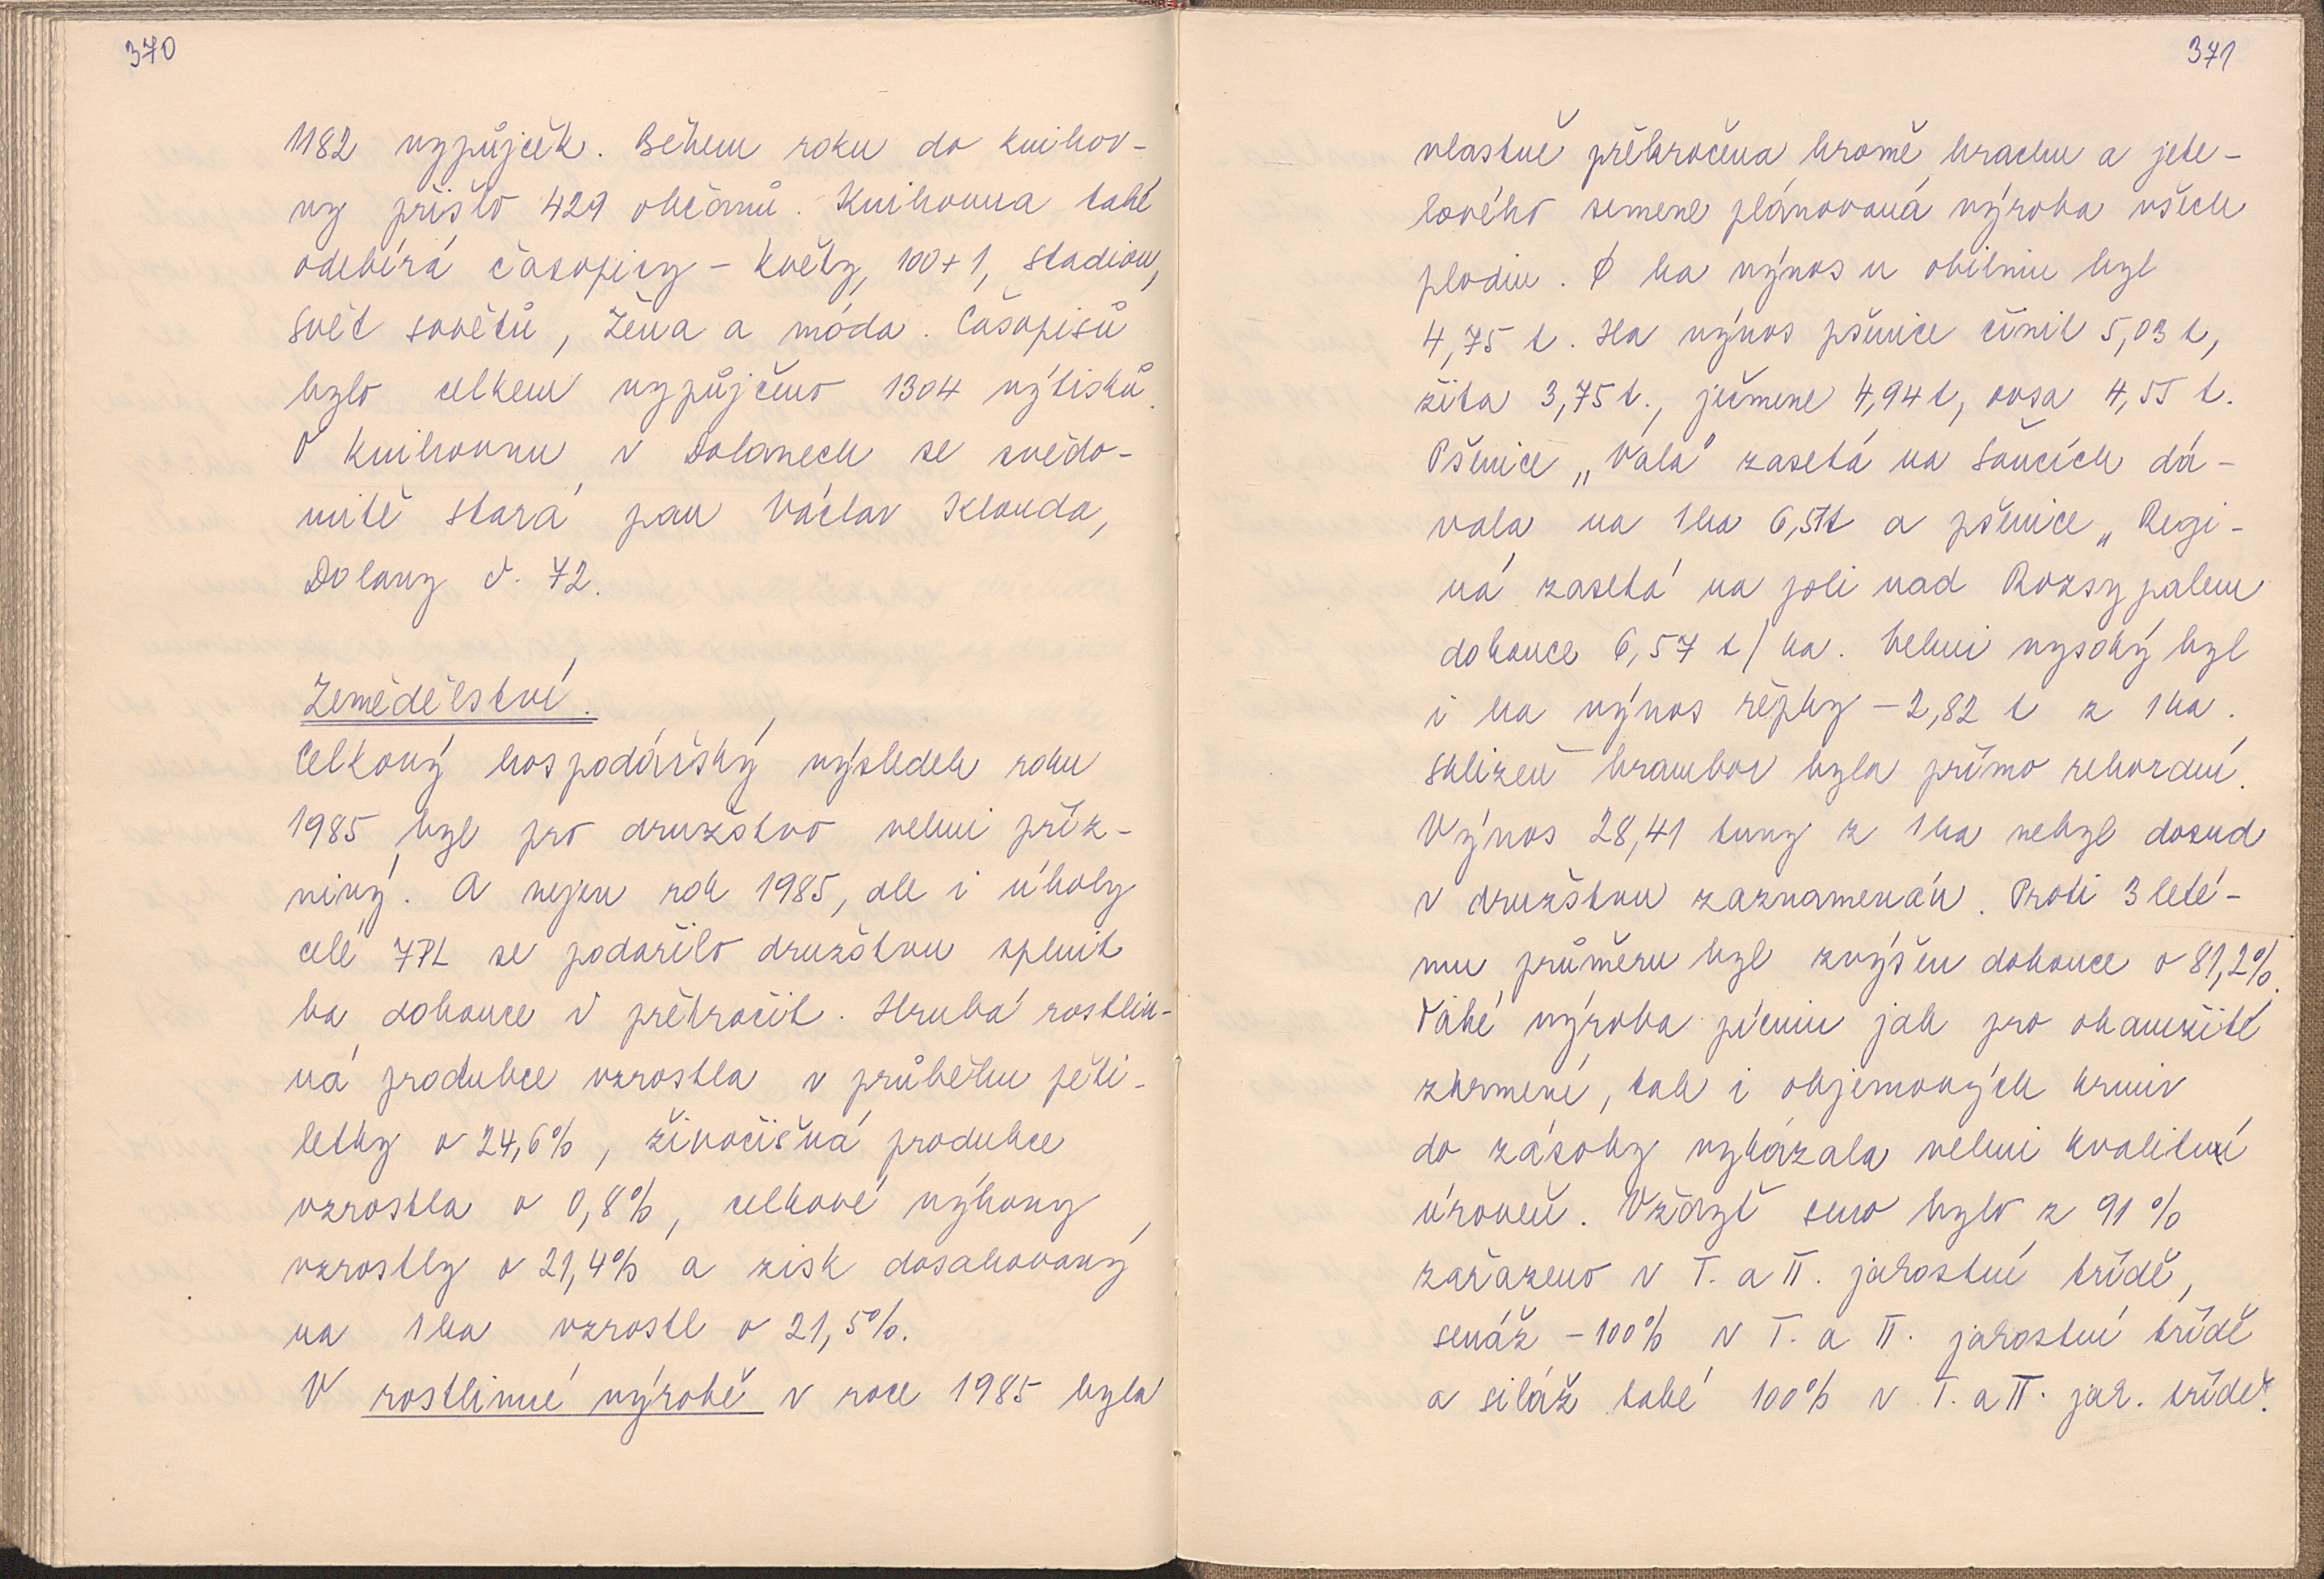 370
1182 vypůjček. Během roku do knihov-
ny přišlo 429 občanů. Knihovna také
odebírá časopisy - Květy, 100+1, Stadion,
Svět sovětů, Žena a móda. Časopisů
bylo celkem vypůjčeno 1304 výtisků.
O knihovnu v Dolanech se svědo-
mitě stará pan Václav Klouda,
Dolany č. 72.
Zemědělství.
Celkový hospodářský výsledek roku
1985 byl pro družstvo velmi příz-
nivý. A nejen rok 1985, ale i úkoly
celé 7PL se podařilo družstvu splnit
ba dokonce i překročit. Hrubá rostlin-
ná produkce vzrostla v průběhu pěti-
letky o 24,6%, živočišná produkce
vzrostla o 0,8%, celkové výkony
vzrostly o 21,4% a zisk dosahovaný
na 1ha vzrostl o 21,5%.
V rostlinné výrobě v roce 1985 byla
371
vlastně překročena kromě hrachu a jete-
lového semene plánovaná výroba všech
plodin. Ø ha výnos u obilnin byl
4,75 t. Ha výnos pšenice činil 5,03 t,
žita 3,75 t., ječmene 4,94 t, ovsa 4,55 t.
Pšenice „Vala" zasetá na Sančích dá-
vala na 1ha 6,51t a pšenice „Regi-
na" zasetá na poli nad Rozsypalem
dokonce 6,57 t/ha. Velmi vysoký byl
i ha výnos řepky - 2,82 t z 1ha.
Sklizeň brambor byla přímo rekordní.
Výnos 28,41 tuny z 1ha nebyl dosud
v družstvu zaznamenán. Proti 3leté-
mu průměru byl zvýšen dokonce o 81,2%.
Také výroba pícnin jak pro okamžité
zkrmení, tak i objemových krmiv
do zásoby vykázala velmi kvalitní
úroveň. Vždyť seno bylo z 91 %
zařazeno v I. a II. jakostní třídě,
senáž - 100% v I. a II. jakostní třídě
a siláž také 100% v I. a II. jak. třídě.